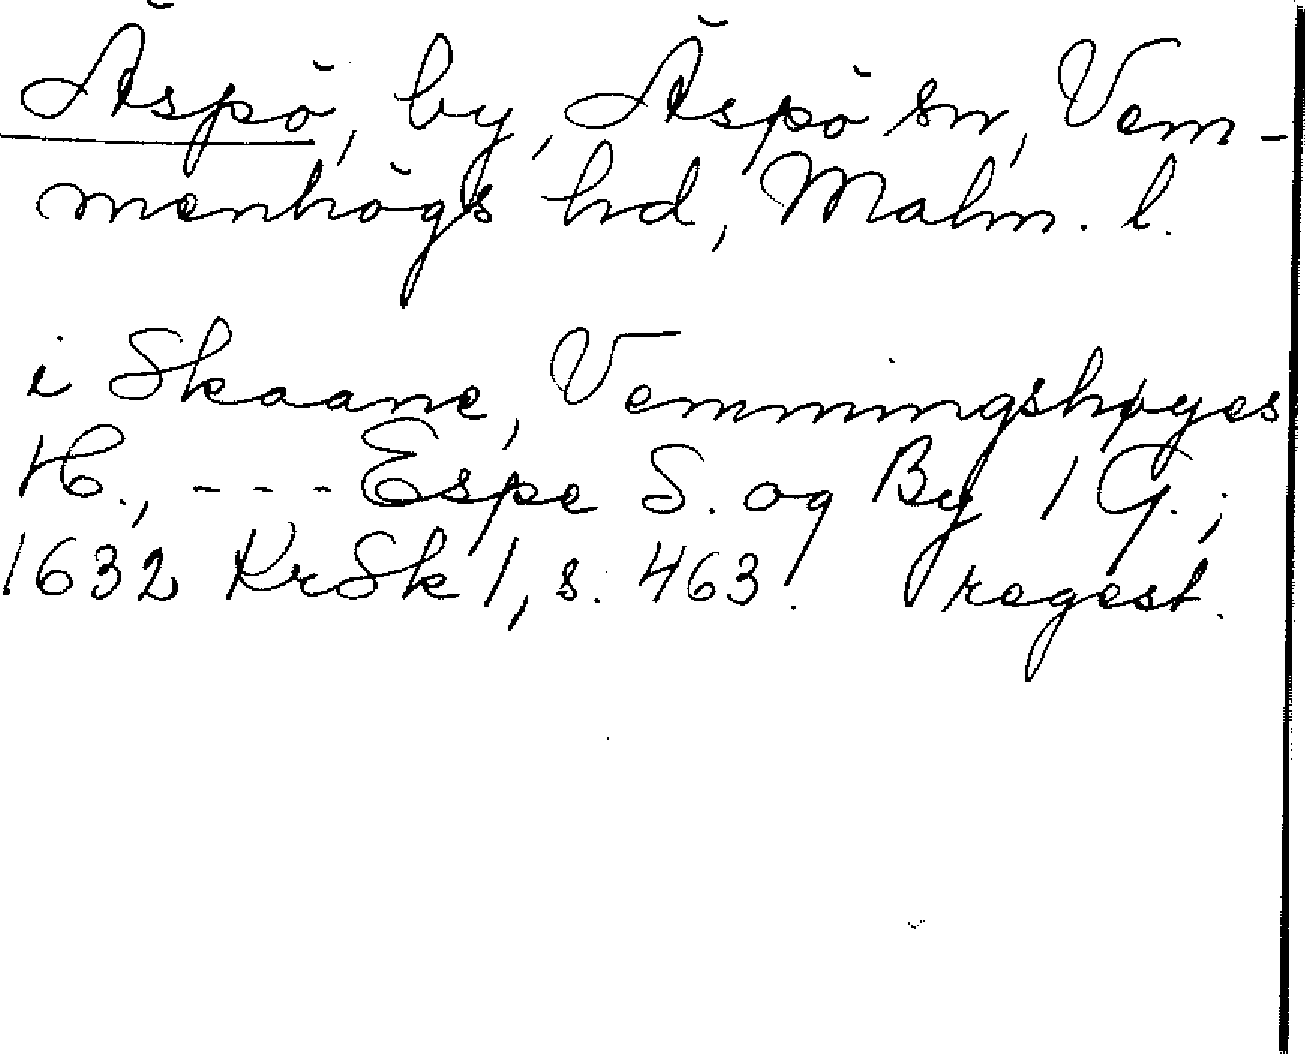 Äspö, by, Äspö sn, Vem-
menhögs hd, Malm. l.
i Skaane, Vemmingshøyes
H., --- Espe S. og By 1 G.;
1632 KrSk 1, s. 463. regest.